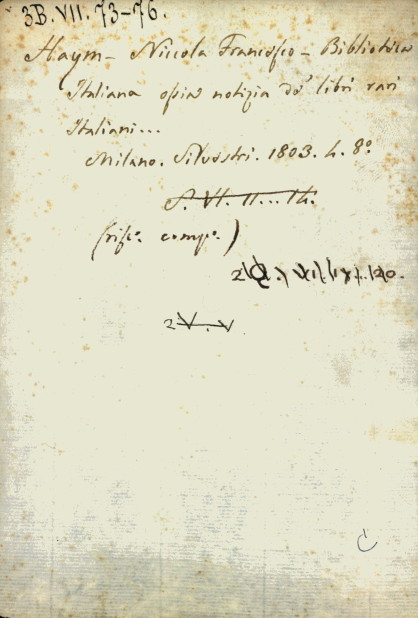 3B. VII. 73-76.
Haym - Niccola Francesco - Biblioteca
Italiana ossia notizia de' libri rari
Italiani...
Milano. Silvestri. 1803. 4. 8.º
S. VI. 11... 14.
(risc.º comp.º)
2 V. V